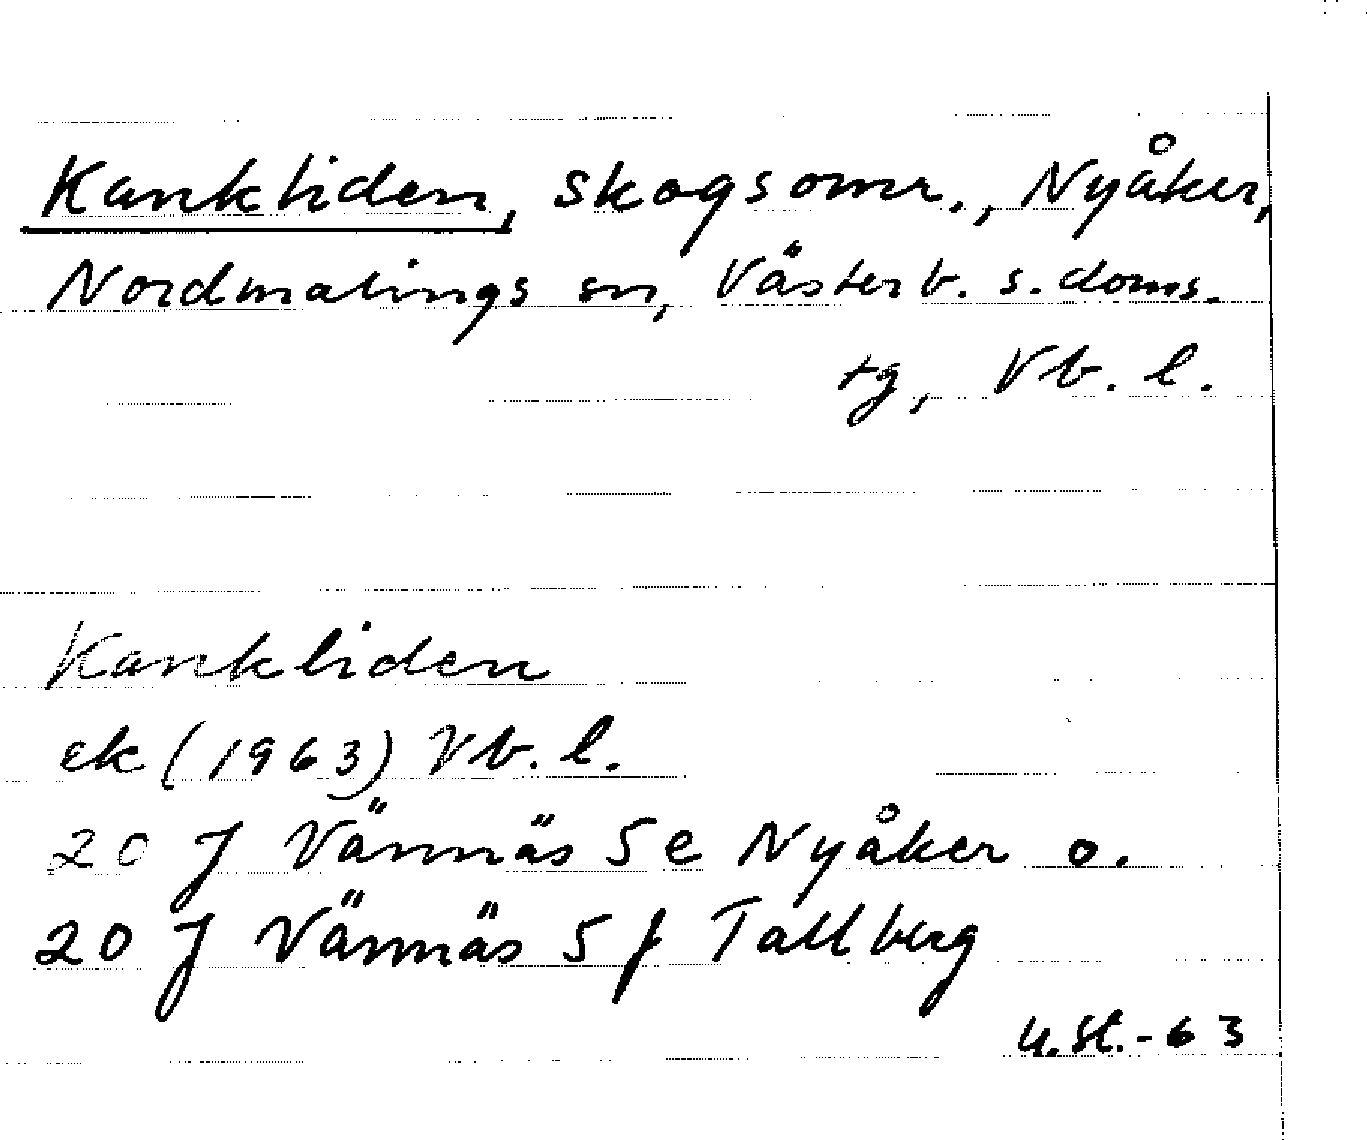 Kankliden, skogsomr., Nyåker,
Nordmalings sn, Västerb. s. doms.
tg, Vb. l.
Kankliden
ek (1963) Vb. l.
20 J Vännäs 5 e Nyåker o.
20 J Vännäs 5 f Tallberg
U. St. - 63